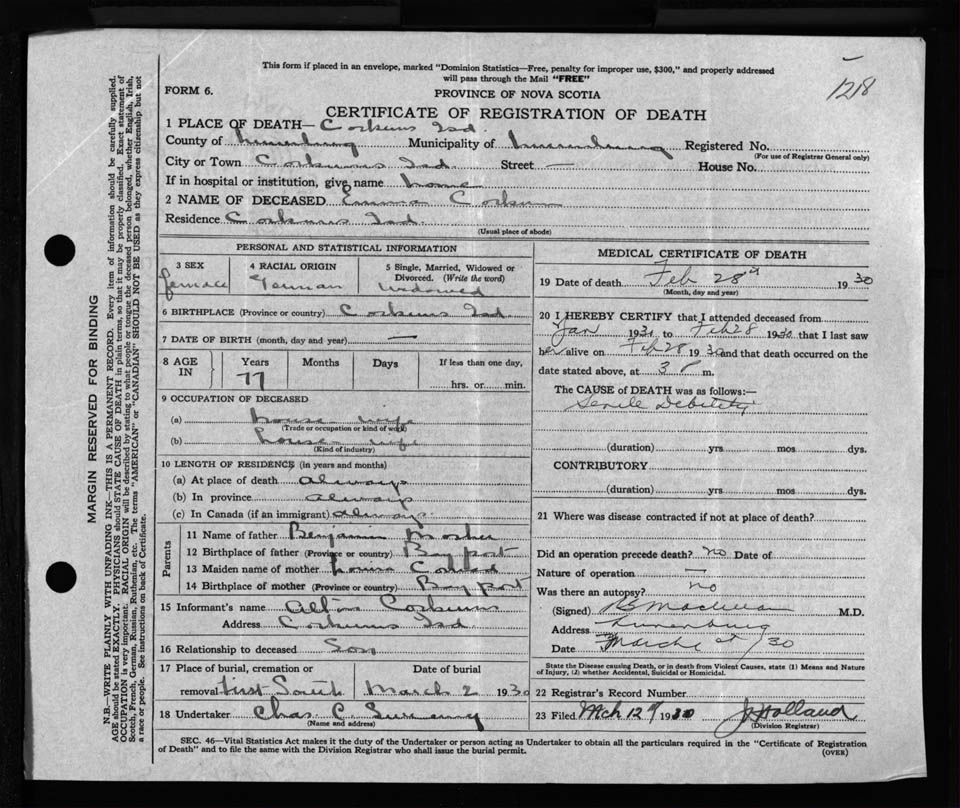 1218
This form if placed in an envelope, marked "Dominion Statistics—Free, penalty for improper use, $300," and properly addressed
will pass through the Mail "FREE"
FORM 6.
PROVINCE OF NOVA SCOTIA
CERTIFICATE OF REGISTRATION OF DEATH
1 PLACE OF DEATH— Corkums Isd.
County of Lunenburg Municipality of Lunenburg Registered No.
(For use of Registrar General only)
City or Town Corkums Isd. Street — House No.
If in hospital or institution, give name home
2 NAME OF DECEASED Emma Corkum
Residence Corkums Isd.
(Usual place of abode)
PERSONAL AND STATISTICAL INFORMATION
3 SEX 4 RACIAL ORIGIN 5 Single, Married, Widowed or
Divorced. (Write the word)
female German Widowed
6 BIRTHPLACE (Province or country) Corkums Isd.
7 DATE OF BIRTH (month, day and year) —
8 AGE IN Years Months Days If less than one day,
77 hrs. or min.
9 OCCUPATION OF DECEASED
(a) house wife
(Trade or occupation or kind of work)
(b) house wife
(Kind of industry)
10 LENGTH OF RESIDENCE (in years and months)
(a) At place of death always
(b) In province always
(c) In Canada (if an immigrant) always
Parents
11 Name of father Benjamin Mosher
12 Birthplace of father (Province or country) Bay port
13 Maiden name of mother Louisa
14 Birthplace of mother (Province or country) Bay port
15 Informant's name Corkum
Address Corkums Isd
16 Relationship to deceased Son
17 Place of burial, cremation or Date of burial
removal First South March 2 1930
18 Undertaker Chas C
(Name and address)
MEDICAL CERTIFICATE OF DEATH
19 Date of death Feb 28th 1930
(Month, day and year)
20 I HEREBY CERTIFY that I attended deceased from
Jan 1930 to Feb 28 1930 that I last saw
her alive on Feb 28 1930 and that death occurred on the
date stated above, at 3 P m.
The CAUSE of DEATH was as follows:—
Senile Debility
(duration) yrs mos dys.
CONTRIBUTORY
(duration) yrs mos dys.
21 Where was disease contracted if not at place of death?
Did an operation precede death? no Date of
Nature of operation —
Was there an autopsy? no
(Signed) M.D.
Address Lunenburg
Date March 1st /30
State the Disease causing Death, or in death from Violent Causes, state (1) Means and Nature
of Injury, (2) whether Accidental, Suicidal or Homicidal.
22 Registrar's Record Number
23 Filed Mch 12th 1930 Holland
(Division Registrar)
SEC. 46—Vital Statistics Act makes it the duty of the Undertaker or person acting as Undertaker to obtain all the particulars required in the "Certificate of Registration
of Death" and to file the same with the Division Registrar who shall issue the burial permit.
(OVER)
MARGIN RESERVED FOR BINDING
N.B.—WRITE PLAINLY WITH UNFADING INK—THIS IS A PERMANENT RECORD. Every item of information should be carefully supplied.
AGE should be stated EXACTLY. PHYSICIANS should STATE CAUSE OF DEATH in plain terms, so that it may be properly classified. Exact statement of
OCCUPATION is very important. RACIAL ORIGIN will be described by stating to what people or tongue the deceased person belonged, whether English, Irish,
Scotch, French, German, Russian, Ruthenian, etc. The terms "AMERICAN" or "CANADIAN" SHOULD NOT BE USED as they express citizenship but not
a race or people. See instructions on back of Certificate.